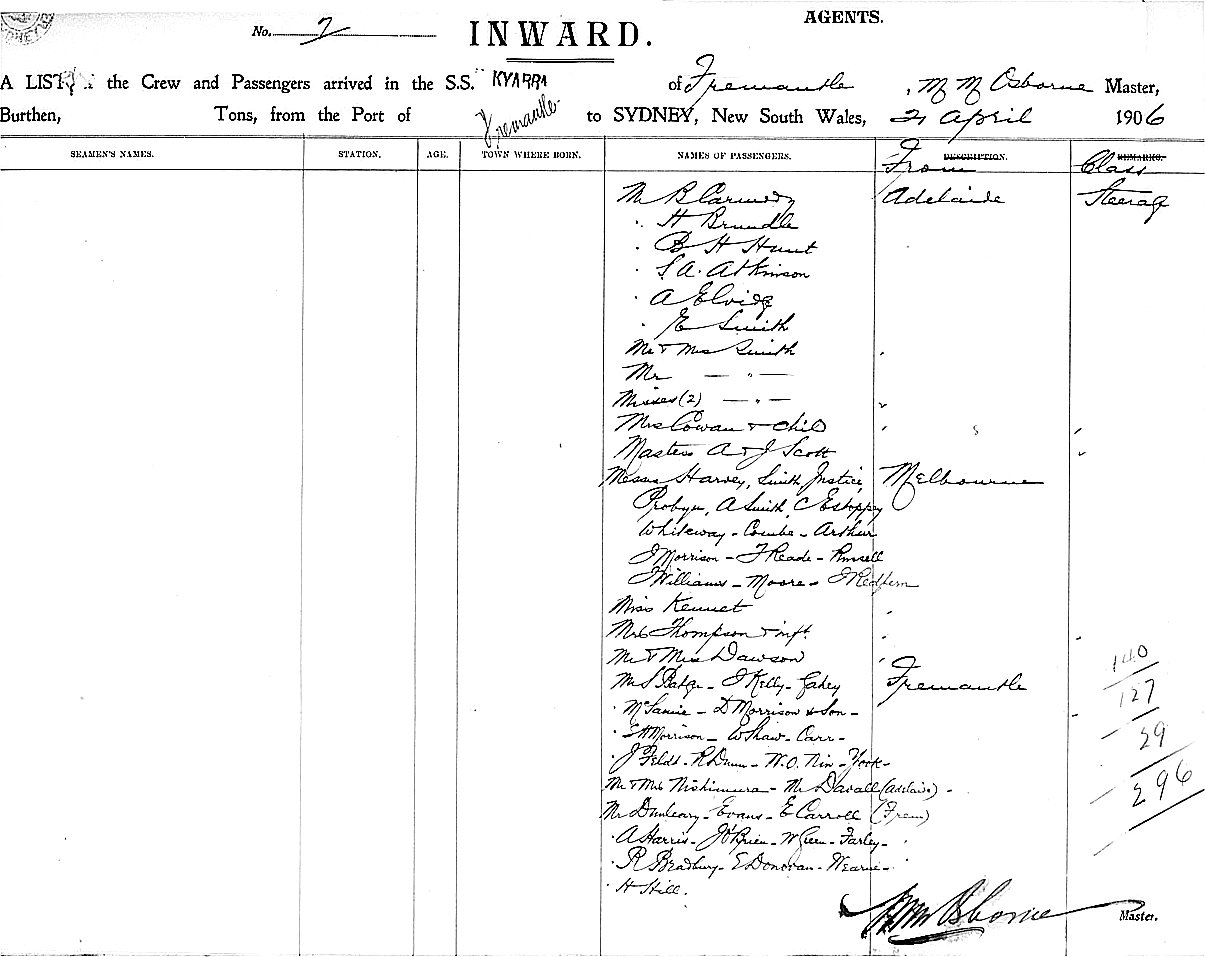 AGENTS.
No. 7 INWARD.
A LIST the Crew and Passengers arrived in the S.S. KYARRA of Fremantle, M M Osborne Master,
Burthen, Tons, from the Port of Fremantle to SYDNEY, New South Wales, 21 April 1906
SEAMEN'S NAMES. STATION. AGE. TOWN WHERE BORN. NAMES OF PASSENGERS. DESCRIPTION. From REMARKS. Class
Mr B Carmody Adelaide Steerage
" H Brundle
" B H Hunt
" S. A. Atkinson
" A Elvidge
" E Smith
Mr & Mrs Smith "
Mr — " —
Misses (2) — " — "
Mrs Cowan & child " "
Masters A & J Scott "
Messrs Harvey, Smith, Justice, Melbourne
Probyn, A Smith, C Estoppey
Whiteway - Combe - Arthur
J Morrison - F Reade - Russell
J Williams - Moore - J Redfern
Miss Kennet "
Mrs Thompson & inft. " "
Mr & Mrs Dawson "
Mr S Badge - J Kelly - Fahey Fremantle
" - D Morrison & Son -
" E H Morrison - W Shaw - Carr -
" J Feldt - R Dunn - W. O. Nin - York -
Mr & Mrs Nishimura - Mr Davall (Adelaide) -
Mr Dunleavy - Evans - E Carroll (Frem)
" A Harris - J O'Brien - W Green - Farley - "
" R Bradbury - E Donovan - Wearne - "
" H Hill.
140
127
29
296
M M Osborne Master.